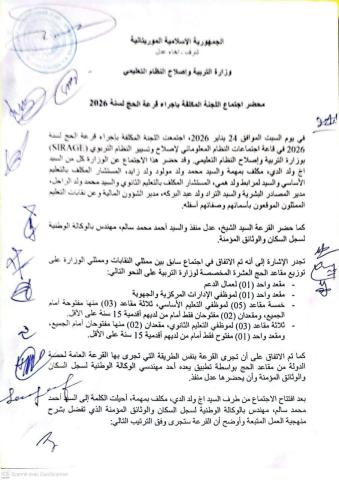 الجمهورية الإسلامية الموريتانية
شرف - إخاء - عدل
وزارة التربية وإصلاح النظام التعليمي
محضر اجتماع اللجنة المكلفة بإجراء قرعة الحج لسنة 2026
في يوم السبت الموافق 24 يناير 2026، اجتمعت اللجنة المكلفة بإجراء قرعة الحج لسنة
2026 في قاعة اجتماعات النظام المعلوماتي لإصلاح وتسيير النظام التربوي (SIRAGE)
بوزارة التربية وإصلاح النظام التعليمي. وقد حضر هذا الاجتماع عن الوزارة كل من السيد
اج ولد الدي، مكلف بمهمة والسيد محمد ولد مولود ولد زايد، المستشار المكلف بالتعليم
الأساسي والسيد لمرابط ولد همي، المستشار المكلف بالتعليم الثانوي والسيد محمد ولد الراجل،
مدير المصادر البشرية والسيد التراد ولد عبد البركه، مدير الشؤون المالية وعن نقابات التعليم
الممثلون الموقعون بأسمائهم وصفاتهم أسفله.
كما حضر القرعة السيد الشيخ، عدل منفذ والسيد أحمد محمد سالم، مهندس بالوكالة الوطنية
لسجل السكان والوثائق المؤمنة.
تجدر الإشارة إلى أنه تم الاتفاق في اجتماع سابق بين ممثلي النقابات وممثلي الوزارة على
توزيع مقاعد الحج العشرة المخصصة لوزارة التربية على النحو التالي:
- مقعد واحد (01) لعمال الدعم
- مقعد واحد (01) لموظفي الإدارات المركزية والجهوية
- خمسة مقاعد (05) لموظفي التعليم الأساسي، ثلاثة مقاعد (03) منها مفتوحة أمام
الجميع، ومقعدان (02) مفتوحان فقط أمام من لديهم أقدمية 15 سنة على الأقل.
- ثلاثة مقاعد (03) لموظفي التعليم الثانوي، مقعدان (02) منها مفتوحان أمام الجميع،
ومقعد واحد (01) مفتوح فقط أمام من لديهم أقدمية 15 سنة على الأقل.
كما تم الاتفاق على أن تجرى القرعة بنفس الطريقة التي تجرى بها القرعة العامة لحصة
الدولة من مقاعد الحج بواسطة تطبيق يعده أحد مهندسي الوكالة الوطنية لسجل السكان
والوثائق المؤمنة وأن يحضرها عدل منفذ.
بعد افتتاح الاجتماع من طرف السيد اج ولد الدي، مكلف بمهمة، أحيلت الكلمة إلى السيد أحمد
محمد سالم، مهندس بالوكالة الوطنية لسجل السكان والوثائق المؤمنة الذي تفضل بشرح
منهجية العمل المتبعة وأوضح أن القرعة ستجرى وفق الترتيب التالي: